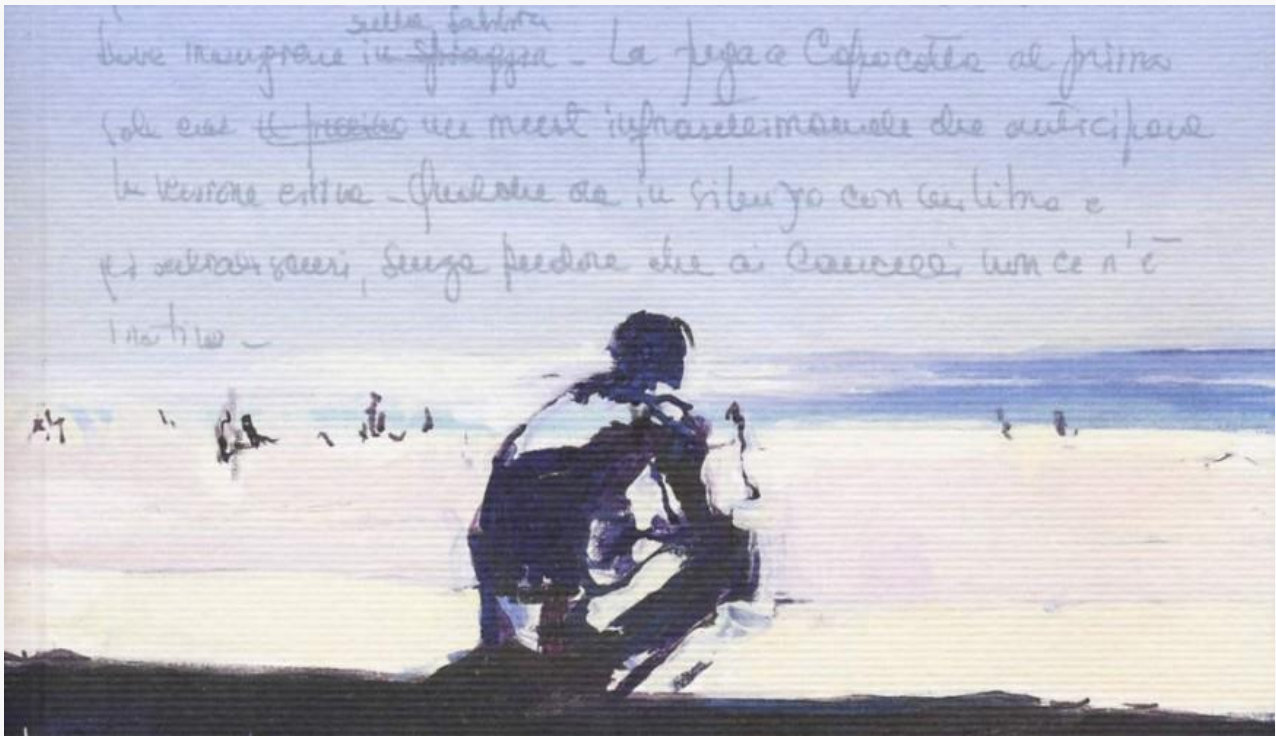 sulla sabbia
dove in spiaggia - La fuga a Capocotta al primo
sole era un must infrasettimanale che anticipava
la versione estiva - Qualche ora in silenzio con un libro e
senza pudore che ai Cancelli non ce n'è
motivo -